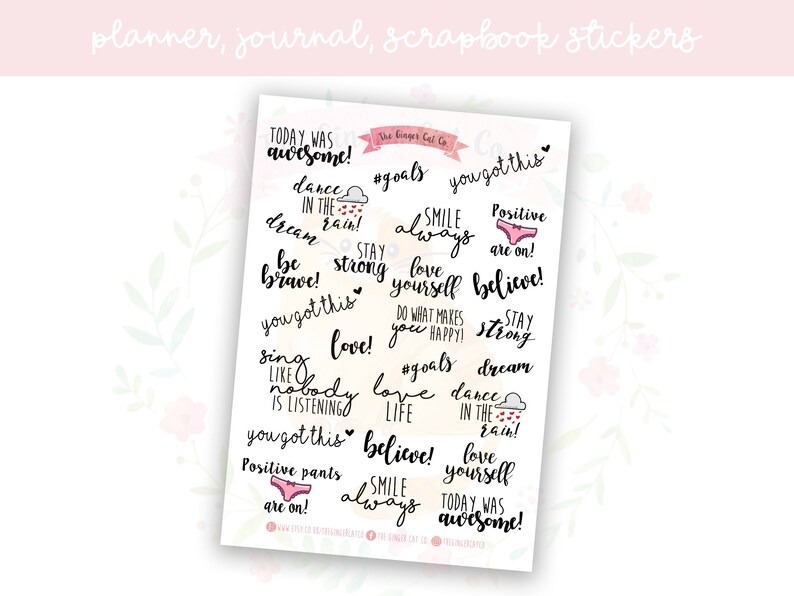 planner, journal, scrapbook stickers
The Ginger Cat Co.
TODAY WAS
awesome!
#goals
you got this
dance
IN THE
rain!
SMILE
always
Positive
are on!
dream
STAY
strong
be
brave!
love
yourself
believe!
you got this
DO WHAT MAKES
you HAPPY!
STAY
strong
love!
#goals
dream
sing
LIKE
nobody
IS LISTENING
love
LIFE
dance
IN THE
rain!
you got this
believe!
love
yourself
Positive pants
are on!
SMILE
always
TODAY WAS
awesome!
THE GINGER CAT CO.
THEGINGERCATCO